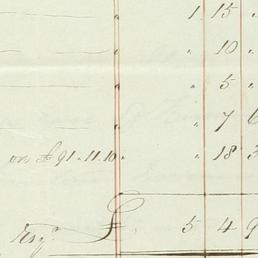 " 1 15 "
" 10 "
" 5 "
" 7 6
on £91.11.10 " " 18 3
Esqr. £ 5 4 9